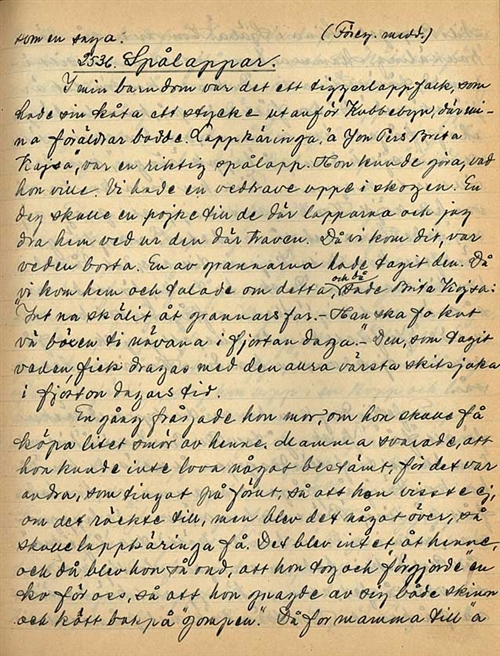 som en saga. (Föreg. medd.)
2536. Spålappar.
I min barndom var det ett tiggarlappfack, som
hade sin kåta ett stycke utanför Kubbebyn, där mi-
na föräldrar bodde. Lappkäringa, "a Jon Pers Brita
Kajsa", var en riktig spålapp. Hon kunde göra, vad
hon ville. Vi hade en vedtrave uppe i skogen. En
dag skulle en pojke till de där lapparna och jag
dra hem ved ur den där traven. Då vi kom dit, var
veden borta. En av grannarna hade tagit den. Då
vi kom hem och talade om detta, sade Brita Kajsa:
"Int na skälit åt grannars fas. – Han ska fo kut
vä böxen ti nävana i fjortan daga." – Den, som tagit
veden, fick dragas med den allra värsta skitsjuka
i fjorton dagars tid.
En gång frågade hon mor, om hon skulle få
köpa litet smör av henne. Mamma svarade, att
hon kunde inte lova något bestämt, för det var
andra, som tingat på förut, så att hon visste ej,
om det räckte till, men blev det något över, så
skulle lappkäringa få. Det blev intet åt henne,
och då blev hon så ond, att hon tog och "förgjorde" en
ko för oss, så att hon gnagde av sig både skinn
och kött bakpå "gompen". Då for mamma till "a